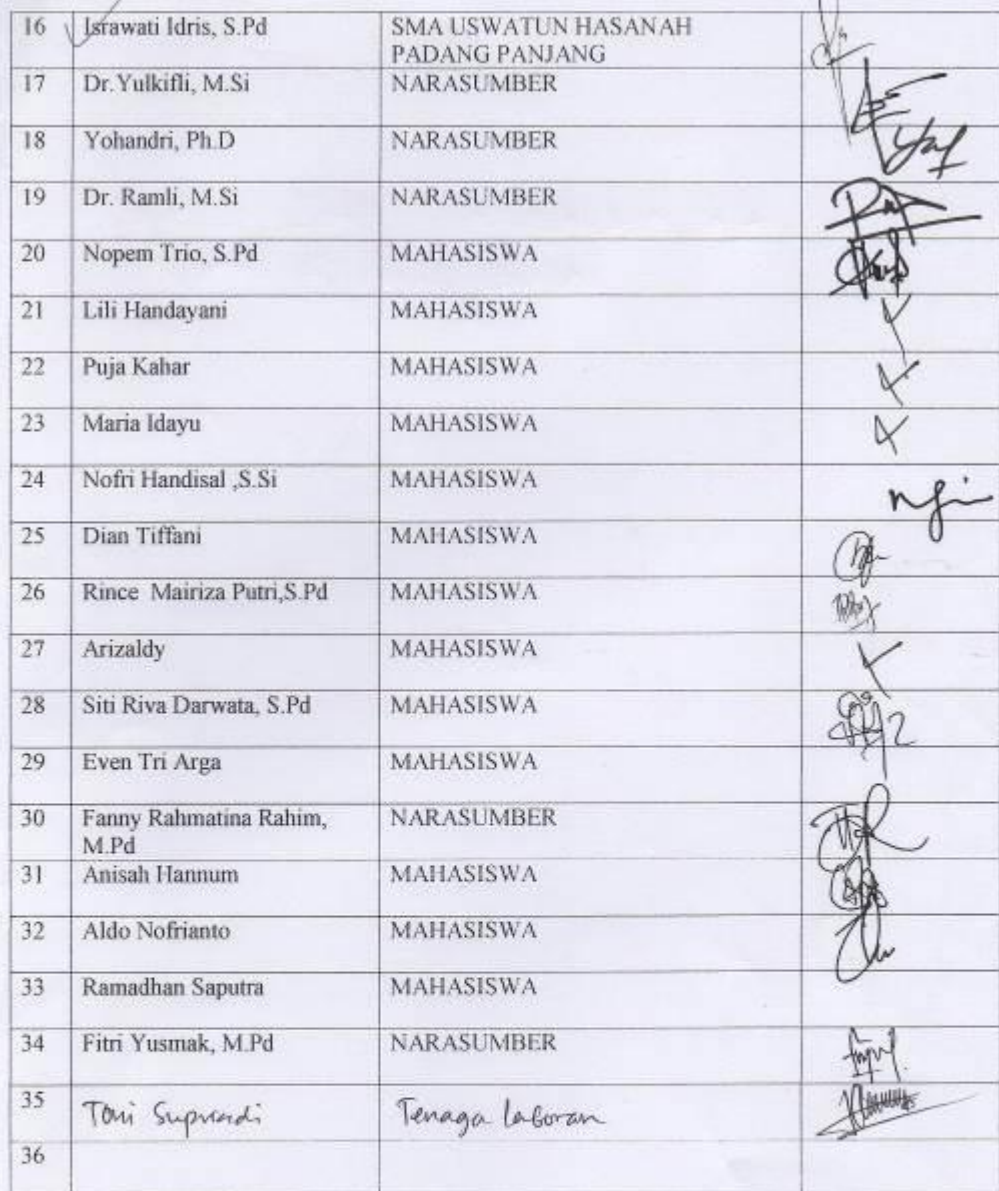 16 Israwati Idris, S.Pd SMA USWATUN HASANAH
PADANG PANJANG
17 Dr.Yulkifli, M.Si NARASUMBER
18 Yohandri, Ph.D NARASUMBER
19 Dr. Ramli, M.Si NARASUMBER
20 Nopem Trio, S.Pd MAHASISWA
21 Lili Handayani MAHASISWA
22 Puja Kahar MAHASISWA
23 Maria Idayu MAHASISWA
24 Nofri Handisal ,S.Si MAHASISWA
25 Dian Tiffani MAHASISWA
26 Rince Mairiza Putri,S.Pd MAHASISWA
27 Arizaldy MAHASISWA
28 Siti Riva Darwata, S.Pd MAHASISWA
29 Even Tri Arga MAHASISWA
30 Fanny Rahmatina Rahim, NARASUMBER
M.Pd
31 Anisah Hannum MAHASISWA
32 Aldo Nofrianto MAHASISWA
33 Ramadhan Saputra MAHASISWA
34 Fitri Yusmak, M.Pd NARASUMBER
35 Toni Tenaga laboran
36